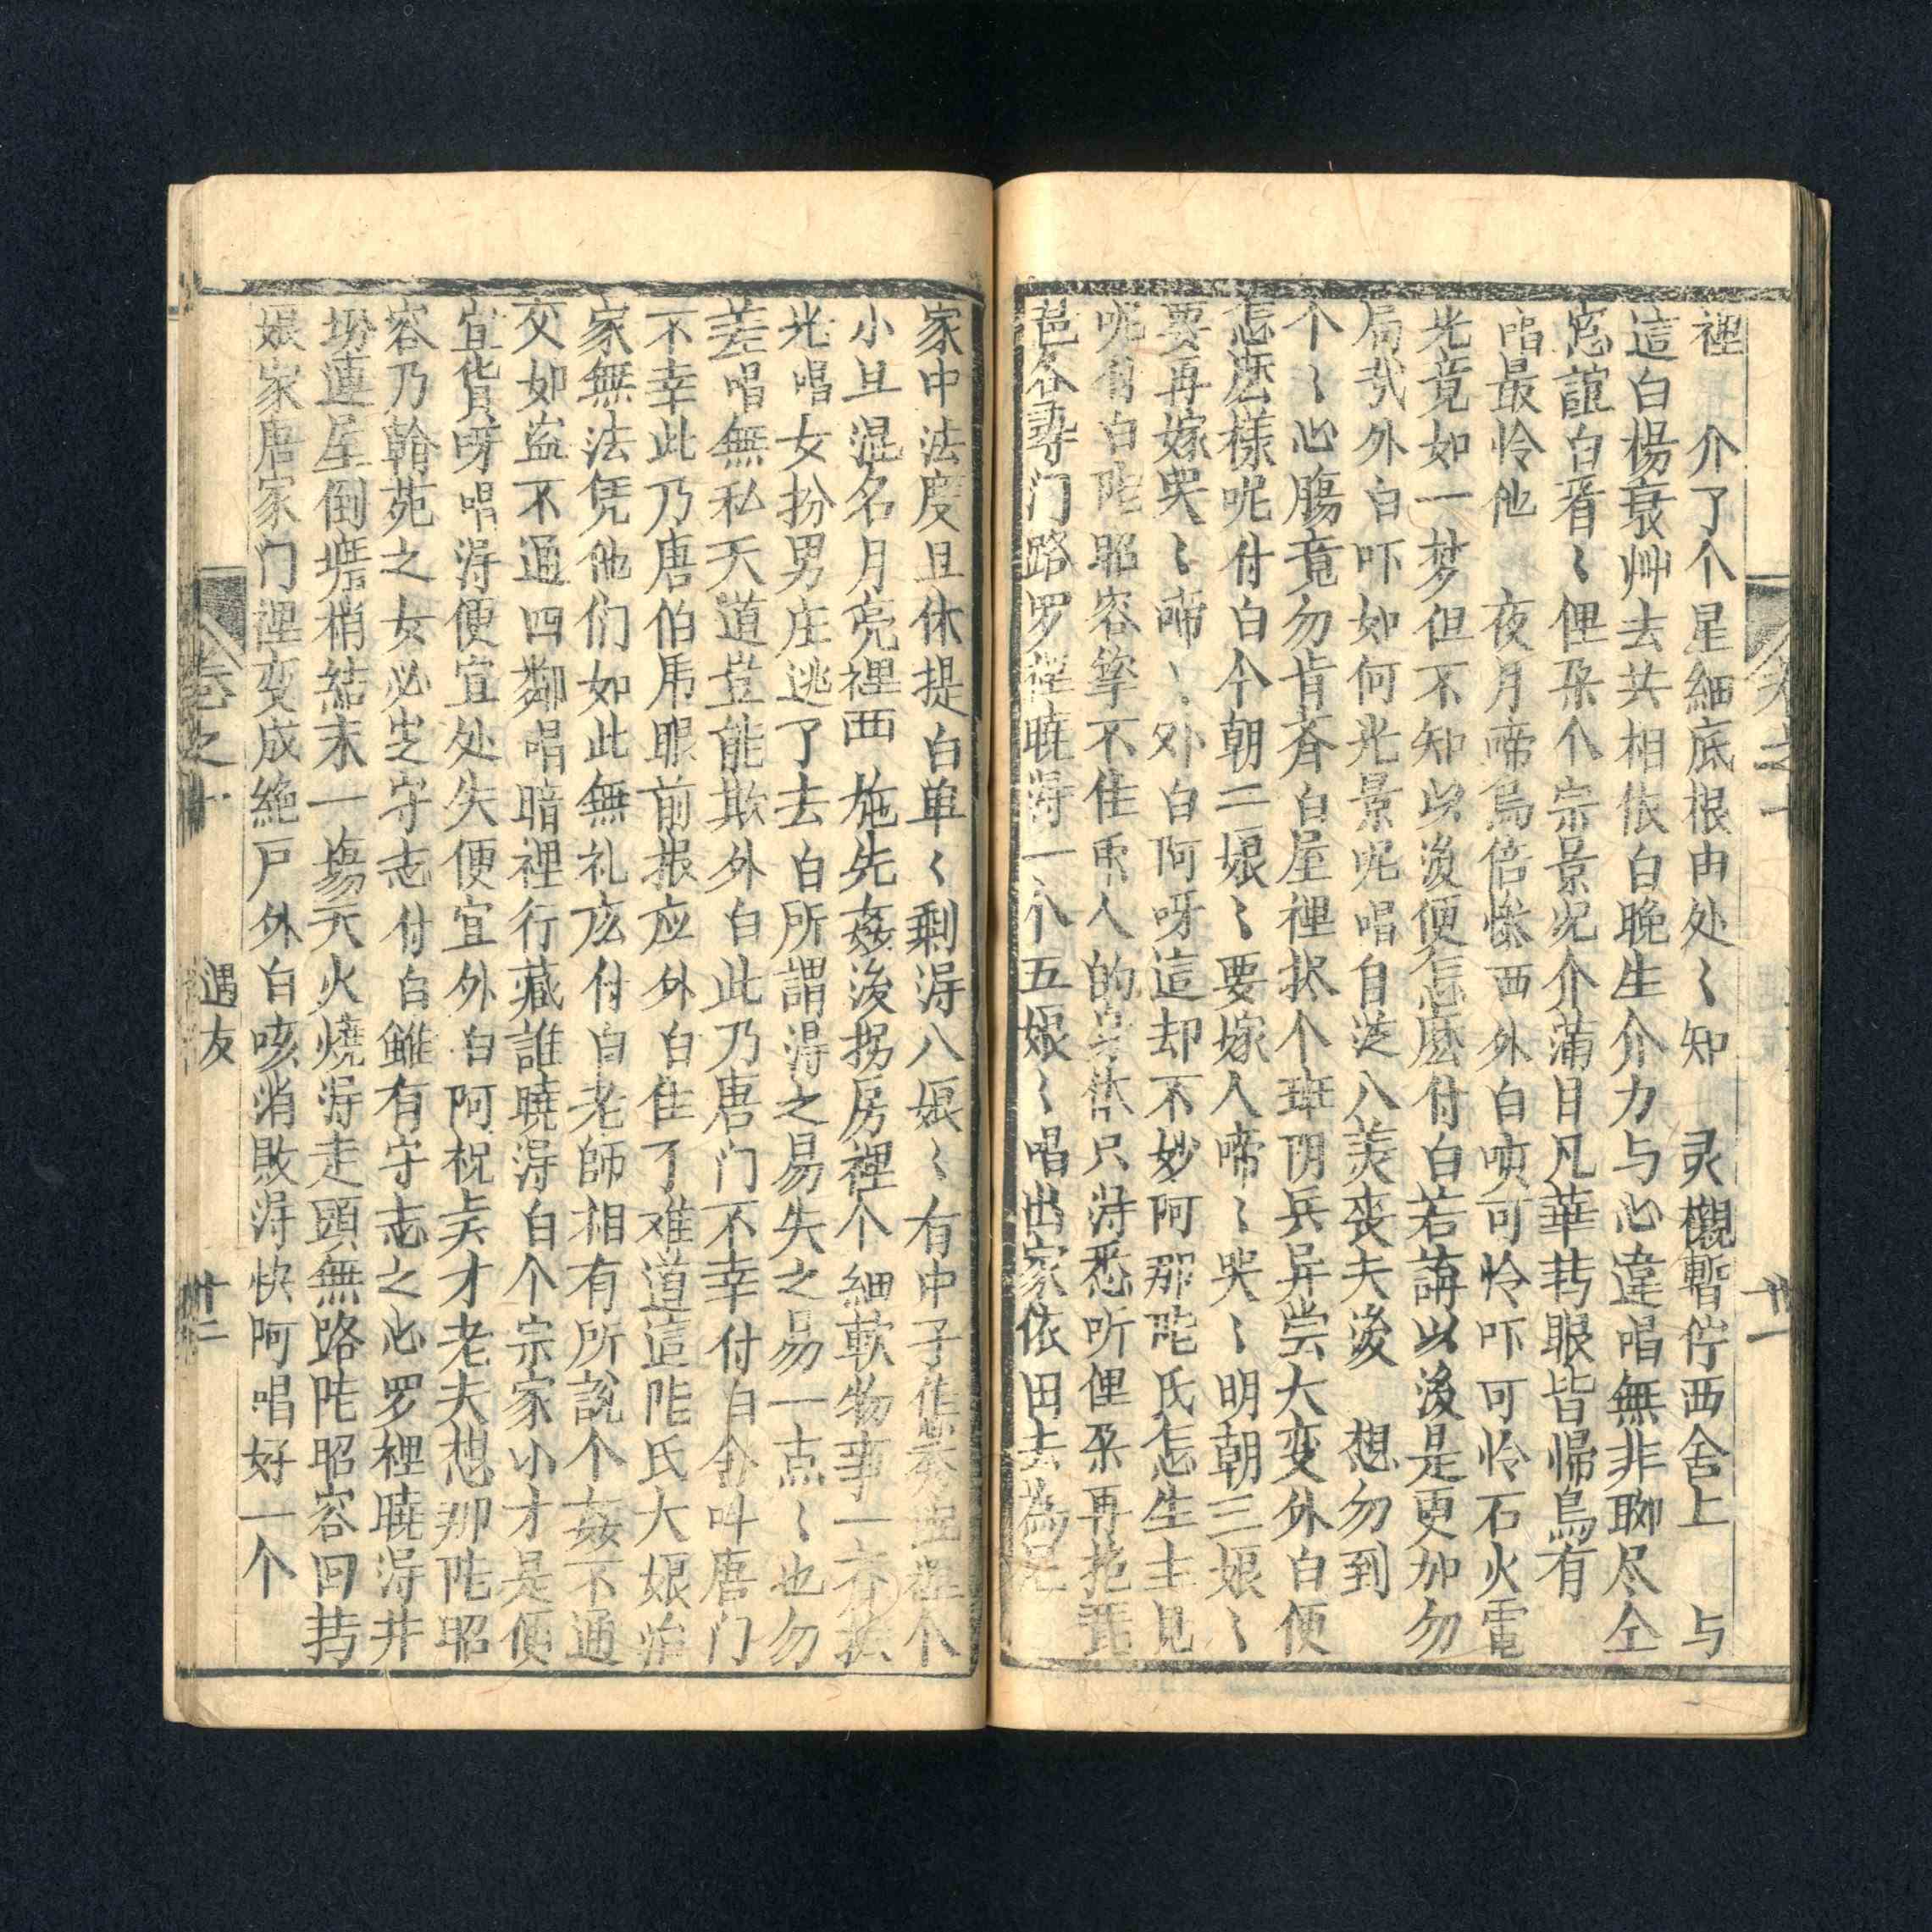 裡　介了个星細底根由处〻知　灵櫬暫停西舍上　与
這白楊衰艸去共相依白晚生介力与心違唱無非聊尽仝
窓誼白看〻俚朶个宗景况介蒲目凡華轉眼皆歸烏有
唱最怜他　夜月啼烏倍惨西外白唝可怜吓可怜石火電
光竟如一梦但不知以後便怎麽付白若講以後是更加勿
局哉外白吓如何光景呢唱自從八美喪夫後　想勿到
个〻心膓竟勿肯斉白屋裡扵个班阴兵异尝大变外白便
怎麽樣呢付白今朝二娘〻要嫁人啼〻哭〻明朝三娘〻
要再嫁哭〻啼〻外白阿呀這却不妙阿那陀氏怎生主見
呢付白陀昭容拏不住用人的身体只得悉听俚朶再抱琵
琶各尋门路罗裡曉淂一个五娘〻唱出家依田去為尼
家中法度旦休提白单〻剩淂八娘〻有中子佳秀班裡个
小旦混名月亮裡西施先姦後拐房裡个細軟物事一齊捲
光唱女扮男庄逃了去白所謂淂之易失之易一点〻也勿
差唱無私天道豈能欺外白此乃唐门不幸付白舍叫唐门
不幸此乃唐伯馬眼前报应外白隹了难道這陀氏大娘治
家無法凭他们如此無礼庅付白老師相有所說个姦不通
交如盗不通四鄰唱暗裡行藏誰曉淂白个宗家小才是便
宜貨呀唱淂便宜处失便宜外白阿祝矣才老夫想那陀昭
容乃翰苑之女必㞢守志付白雖有守志之心罗裡曉淂井
坍連屋倒壻梢結末一塲天火燒淂走頭無路陀昭容回轉
娘家唐家门裡变成絶户外白咳消敗淂快阿唱好一个
卷之十
遇友
十二
卷之十
十一